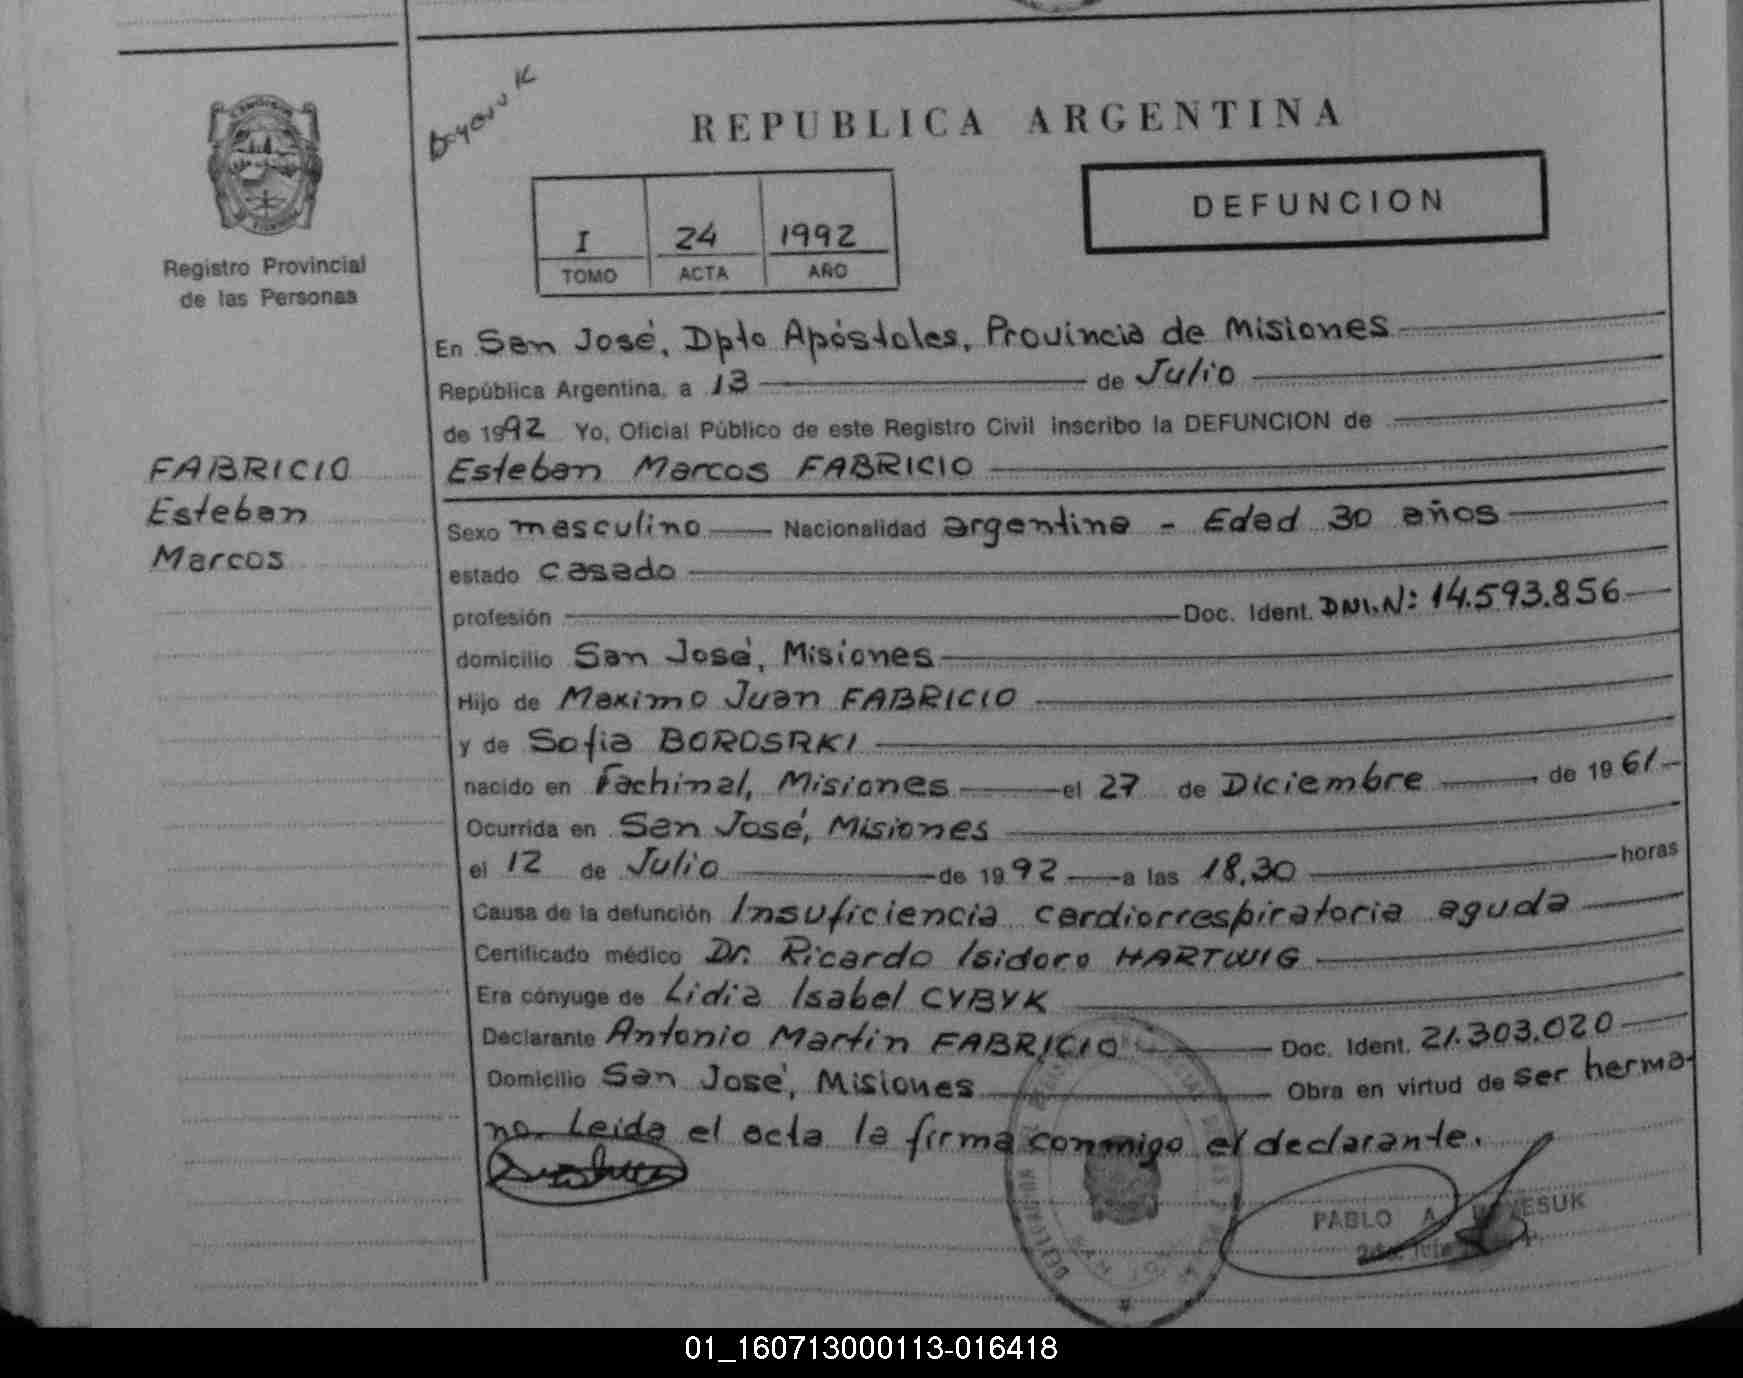 REPUBLICA ARGENTINA
DEFUNCION
I 24 1992
TOMO ACTA AÑO
Registro Provincial
de las Personas
FABRICIO
Esteban
Marcos
En San José, Dpto Apóstoles, Provincia de Misiones
República Argentina, a 13 de Julio
de 1992 Yo, Oficial Público de este Registro Civil inscribo la DEFUNCION de
Esteban Marcos FABRICIO
Sexo masculino Nacionalidad argentina - Edad 30 años
estado casado
profesión Doc. Ident. DNI.Nº: 14.593.856
domicilio San José, Misiones
Hijo de Maximo Juan FABRICIO
y de Sofia BOROSRKI
nacido en Fachinal, Misiones el 27 de Diciembre de 1961
Ocurrida en San José, Misiones
el 12 de Julio de 1992 a las 18,30 horas
Causa de la defunción Insuficiencia cardiorrespiratoria aguda
Certificado médico Dr. Ricardo Isidoro HARTWIG
Era cónyuge de Lidia Isabel CYBYK
Declarante Antonio Martin FABRICIO Doc. Ident. 21.303.020
Domicilio San José, Misiones Obra en virtud de ser herma-
no. Leida el acta la firma conmigo el declarante.
PABLO A.
01_160713000113-016418